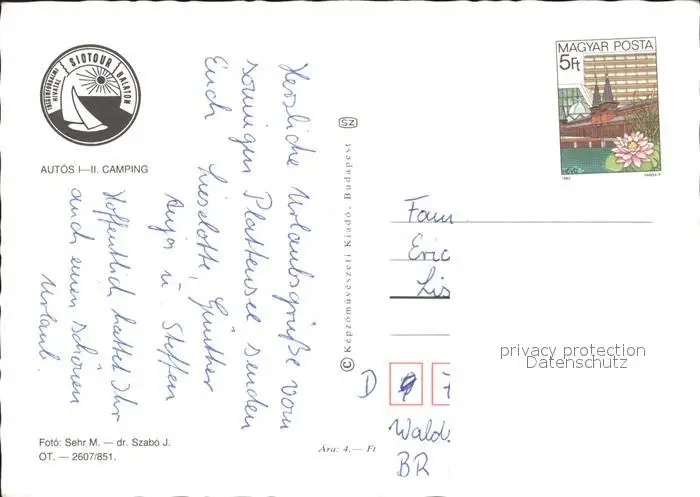 SIOTOUR BALATON
IDEGENFORGALMI HIVATAL
AUTÓS I—II. CAMPING
Herzliche Urlaubsgrüße vom
sonnigen Plattensee senden
Euch Lieselotte, Günther
Anja u. Steffen
Hoffentlich hattet Ihr
auch einen schönen
Urlaub.
Fotó: Sehr M. — dr. Szabó J.
OT. — 2607/851.
SZ
© Képzőművészeti Kiadó, Budapest
Ára: 4.— Ft
MAGYAR POSTA
5Ft
1983 VARGA P.
Fam
Eric
Lis
privacy protection
Datenschutz
D
Wald
BR